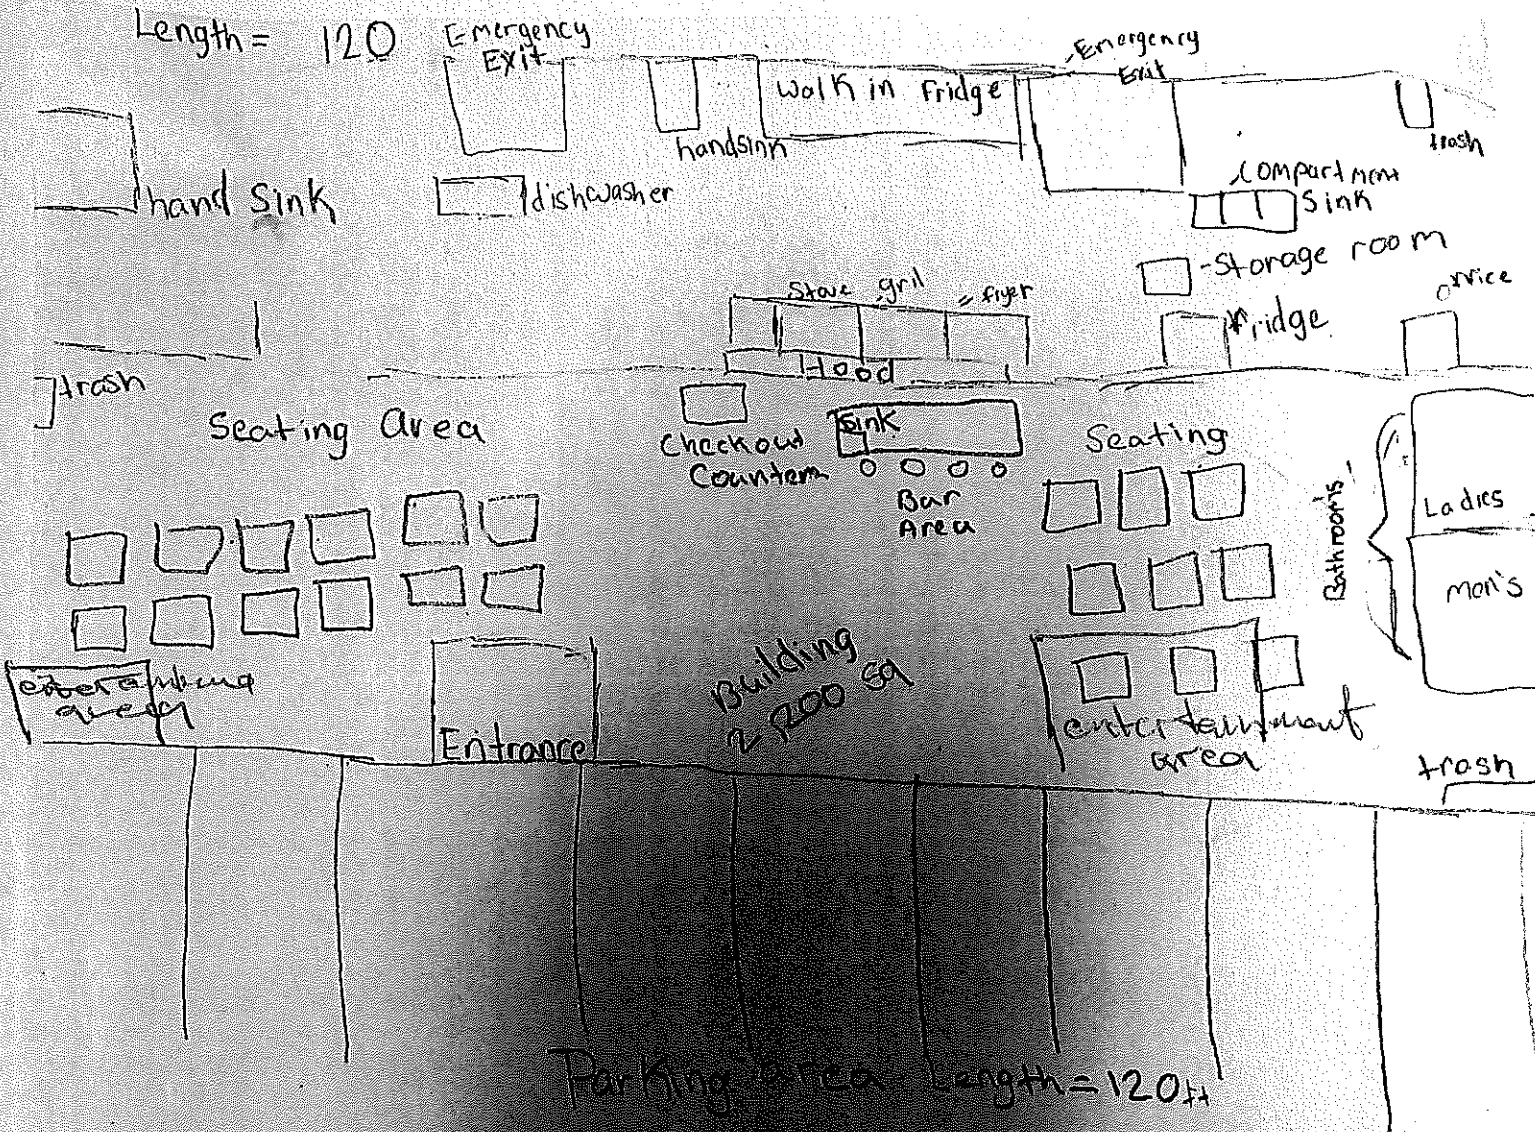 Length = 120
Emergency
Exit
Emergency
Exit
walk in fridge
handsink
trash
hand Sink
dishwasher
compartment
Sink
-Storage room
Stove gril fryer
fridge
office
Hood
trash
Seating area
Checkout
Counter
Sink
Bar
Area
Seating
Bathrooms
Ladies
men's
area
Entrance
Building
2,200 sq
entertainment
area
trash
Parking area Length = 120ft